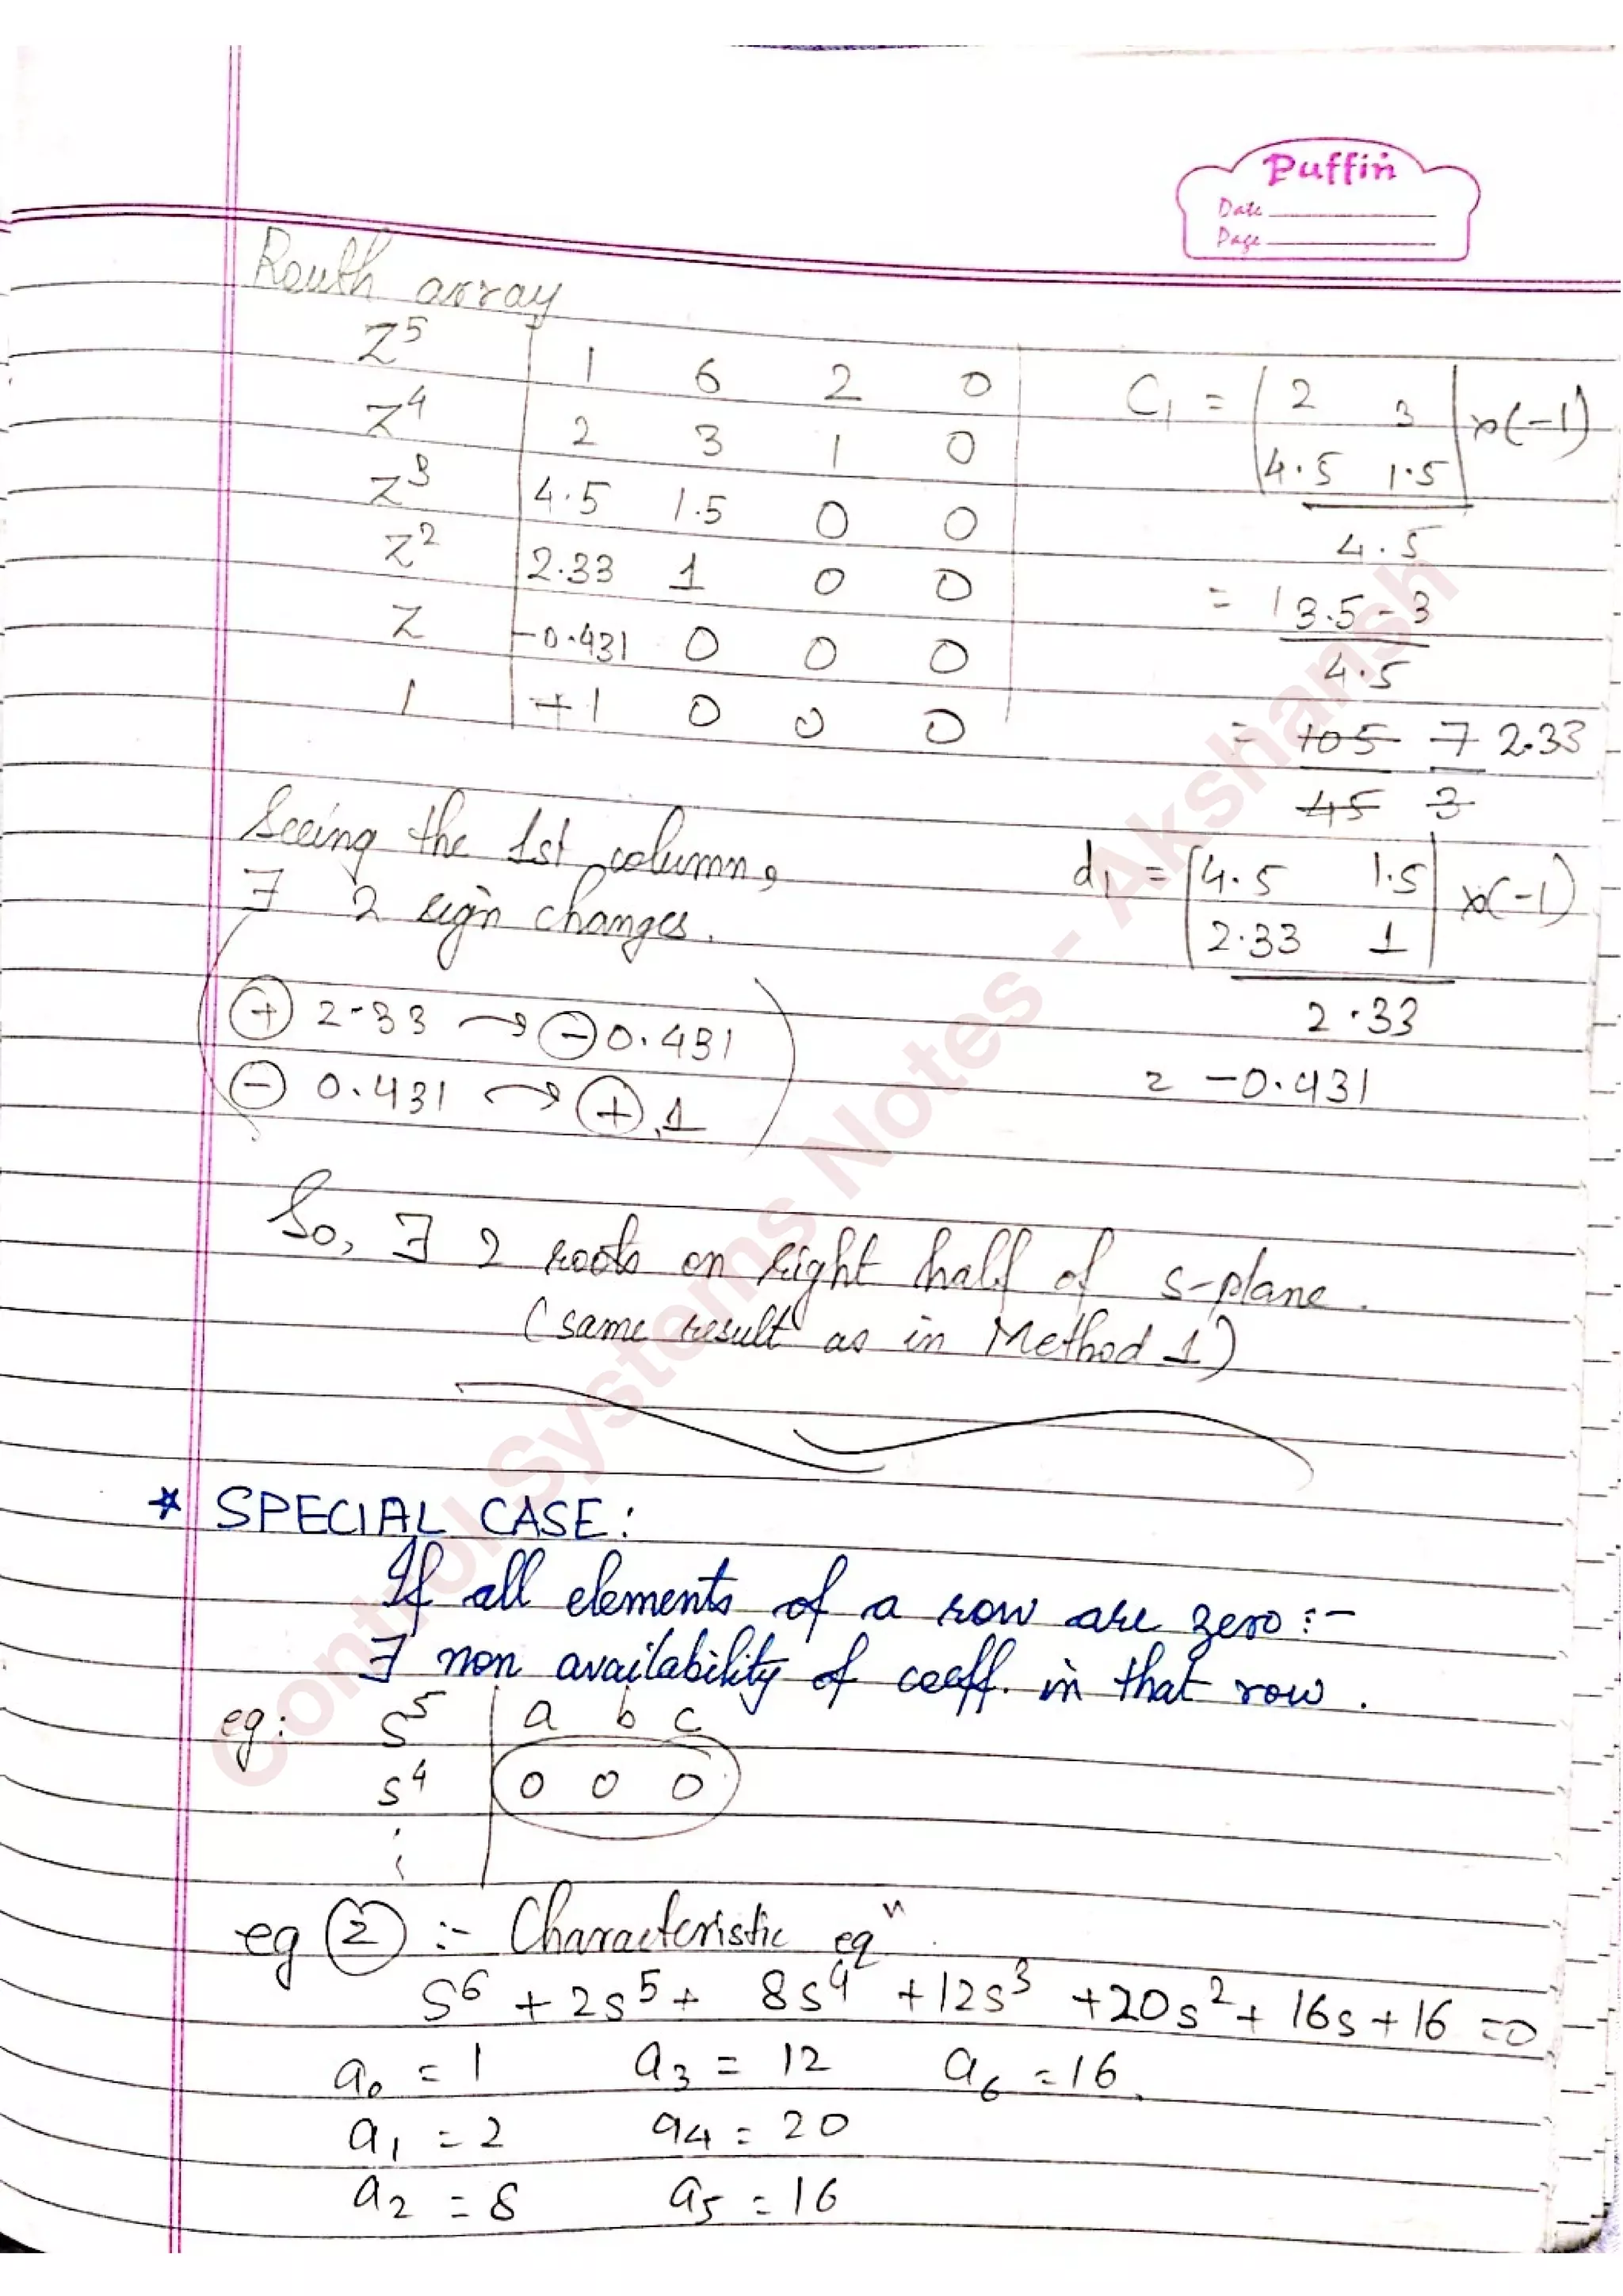 Puffin
Date
Page
Routh array
Z⁵ 1 6 2 0
Z⁴ 2 3 1 0
Z³ 4.5 1.5 0 0
Z² 2.33 1 0 0
Z -0.431 0 0 0
1 +1 0 0 0
C₁ = | 2 3 | x(-1)
| 4.5 1.5 |
4.5
= 13.5-3
4.5
= 105 7 2.33
45 3
Seeing the 1st column,
∃ 2 sign changes.
(+) 2.33 → (-) 0.431
(-) 0.431 → (+) 1
d₁ = | 4.5 1.5 | x(-1)
| 2.33 1 |
2.33
= -0.431
So, ∃ 2 roots on right half of s-plane.
(same result as in Method 1)
* SPECIAL CASE:
If all elements of a row are zero:-
∃ non availability of coeff. in that row.
eg: s⁵ a b c
s⁴ 0 0 0
eg (2) :- Characteristic eqⁿ
s⁶ + 2s⁵ + 8s⁴ + 12s³ + 20s² + 16s + 16 = 0
a₀ = 1 a₃ = 12 a₆ = 16
a₁ = 2 a₄ = 20
a₂ = 8 a₅ = 16
Control Systems Notes - Akshansh